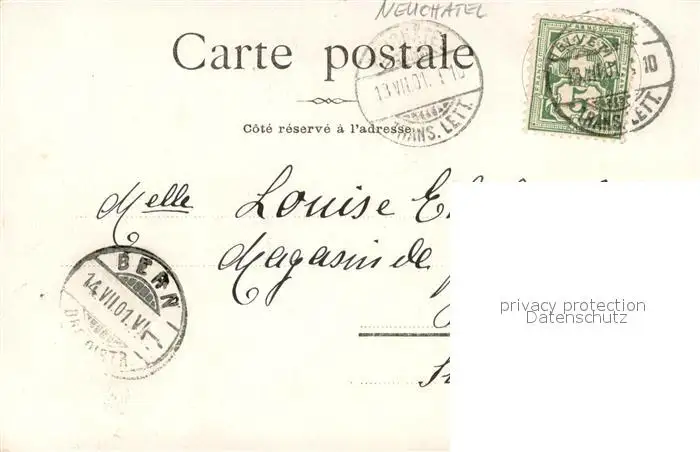 NEUCHATEL
Carte postale
13.VII.01. 10
TRANS. LETT.
HELVETIA
13.VII.01. 10
5
TRANS. LETT.
Côté réservé à l'adresse
Melle Louise
Magasin de
BERN
14.VII.01.VI
privacy protection
Datenschutz